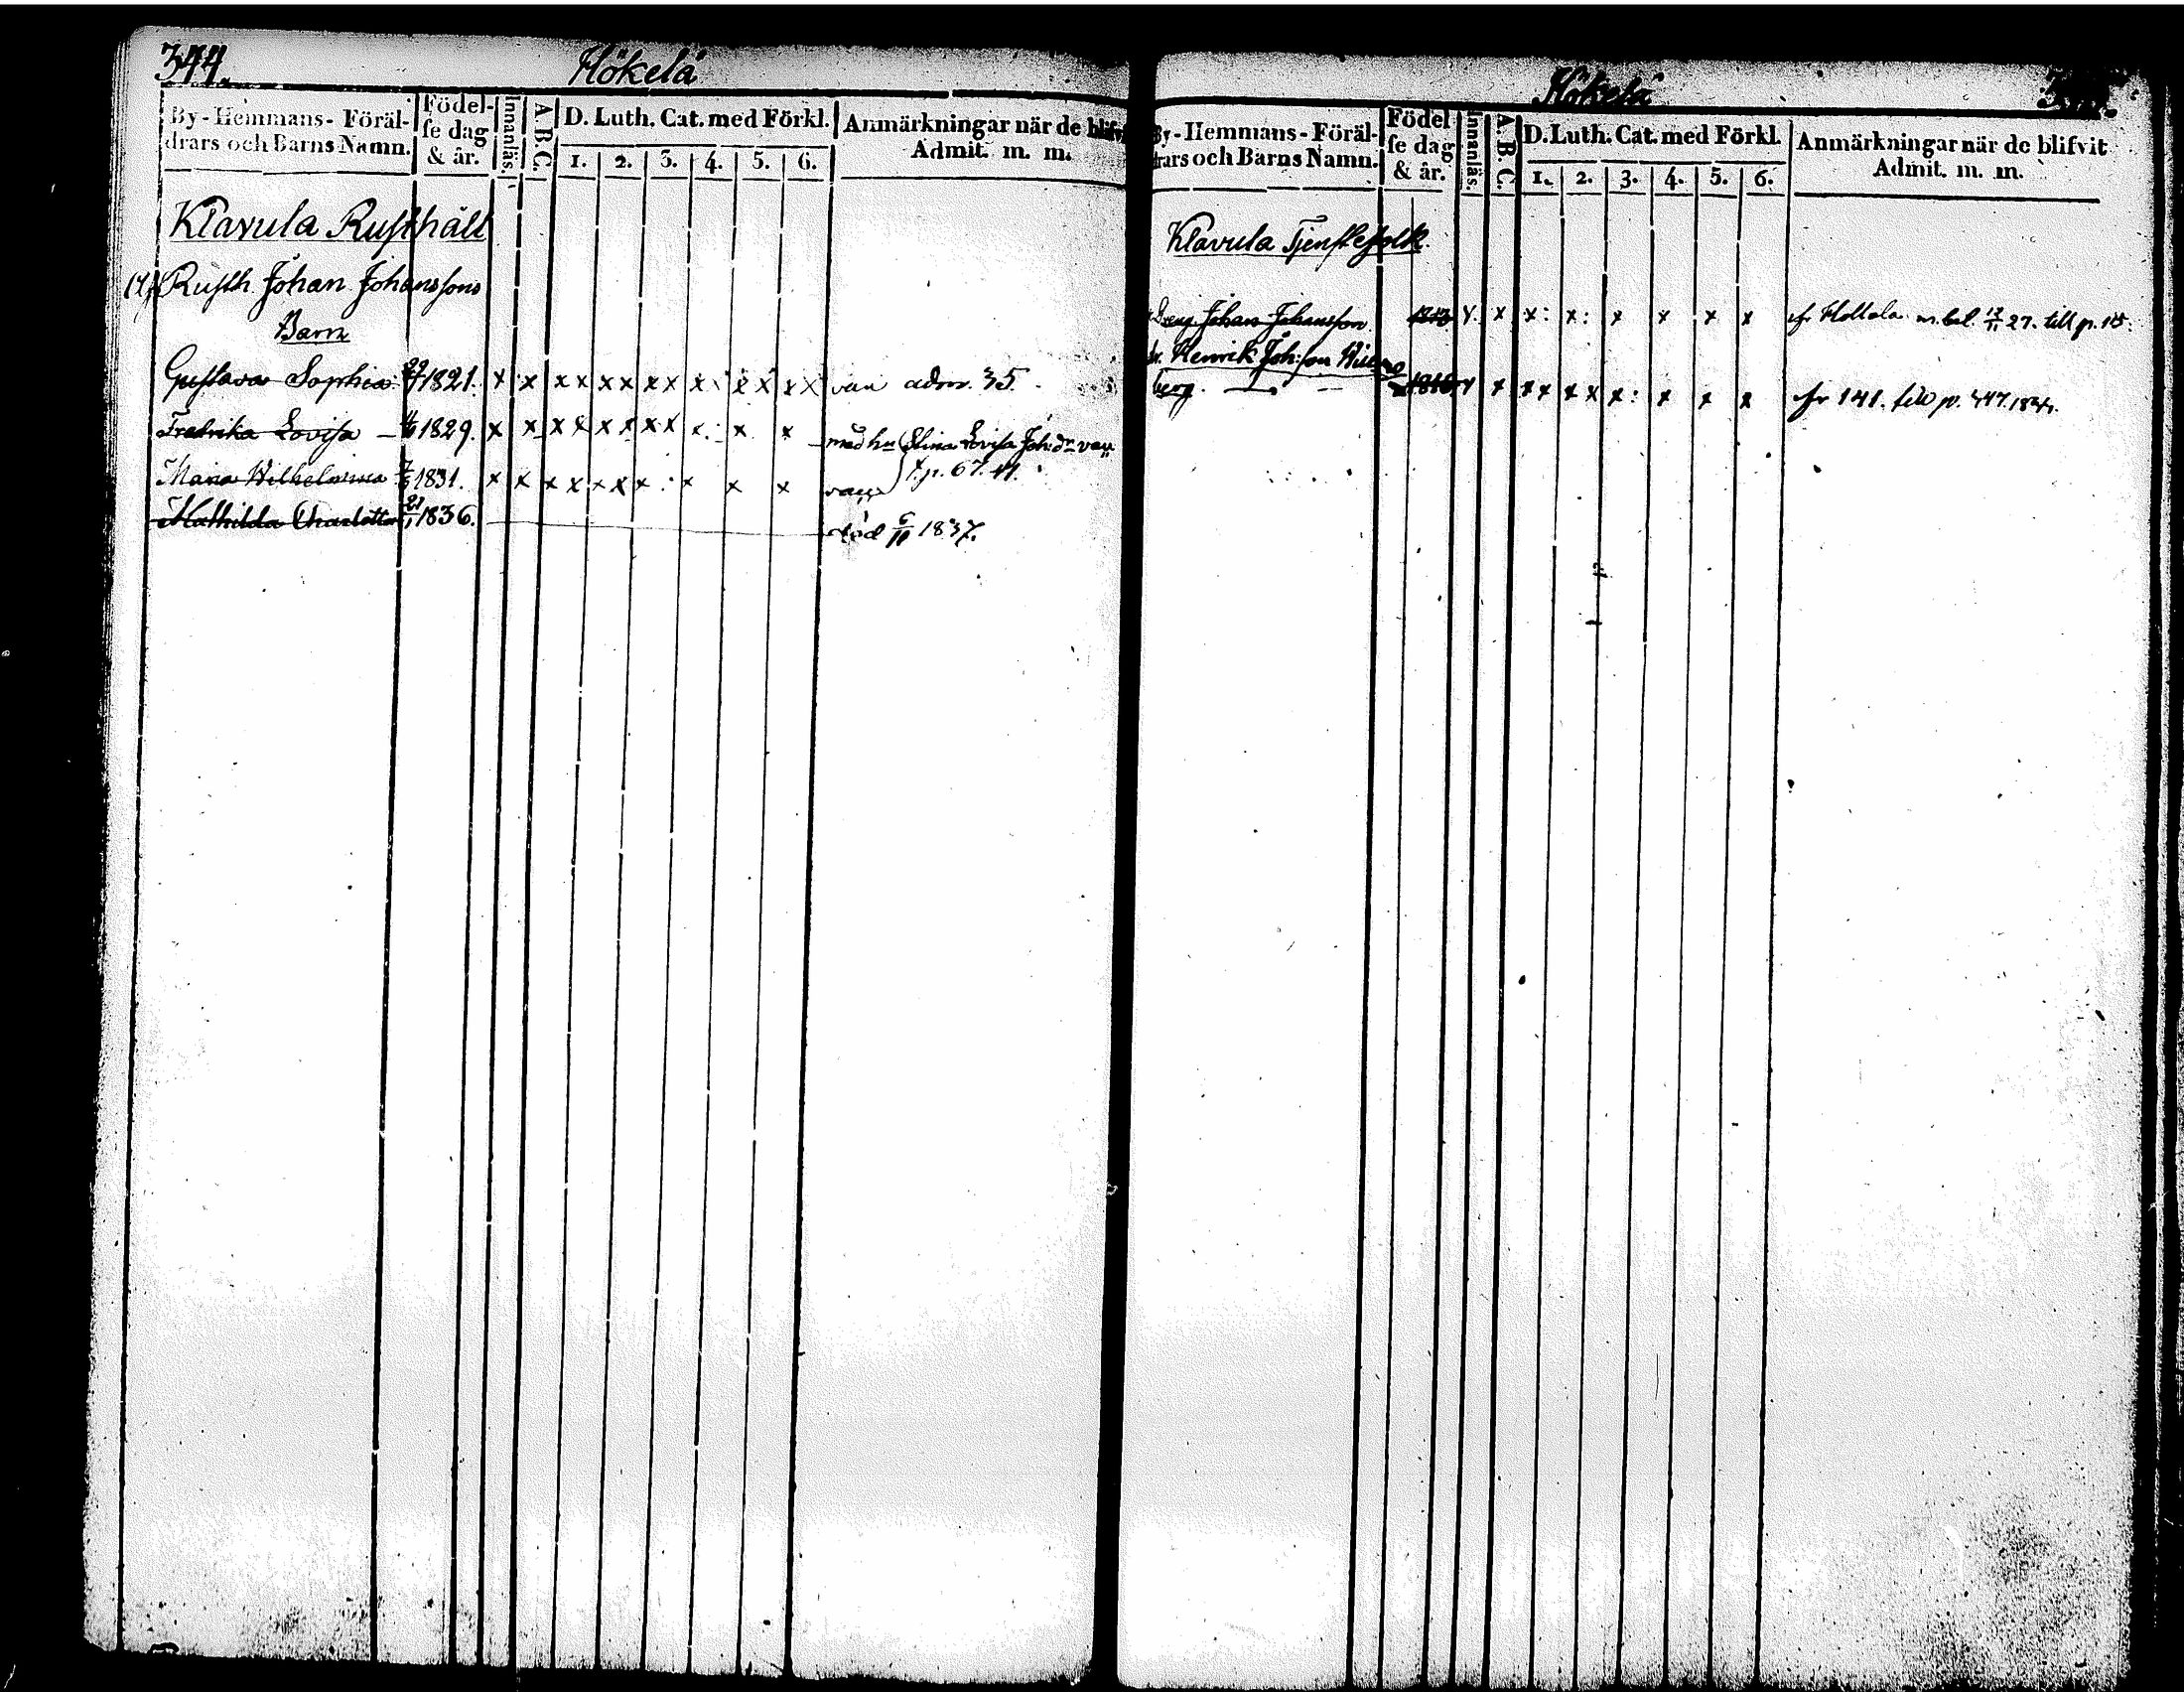 344.
Hökelä
By-Hemmans-Föräl-
drars och Barns Namn.
Födel-
se dag
& år.
Innanläs.
A. B. C.
D. Luth. Cat. med Förkl.
1. 2. 3. 4. 5. 6.
Anmärkningar när de blifvit
Admit. m. m.
Klavula Rusthåll
Rusth. Johan Johanssons
Barn
Gustava Sophia 1821. x x x x x x x x x x x x x x van adm. 35.
Fredrika Lovisa 1829. x x x x x x x x x x x med hu Elina Lovisa Joh:dr van
Maria Wilhelmina 1831. x x x x x x x x x x van p. 67. 41.
Mathilda Charlotta 21/1 1836. död 6/10 1837.
Hökelä
By-Hemmans-Föräl-
drars och Barns Namn.
Födel
se dag
& år.
Innanläs.
A. B. C.
D. Luth. Cat. med Förkl.
1. 2. 3. 4. 5. 6.
Anmärkningar när de blifvit
Admit. m. m.
Klavula Tjenstefolk.
Dreng Johan Johansson x x: x: x x x x fr Hollola m. bet. 27. till p. 
Henrik Joh:son
berg. 1816 x x x x x x: x x x fr 141. till p. 447.